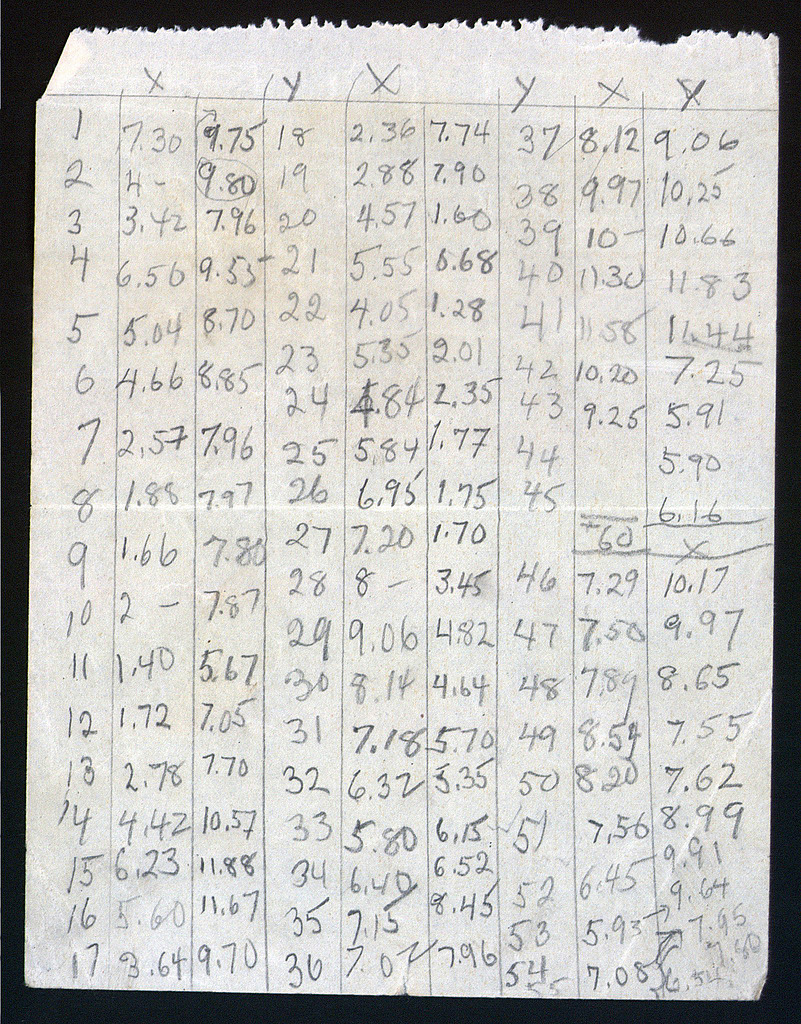 X Y X Y X Y
1 7.30 9.75 18 2.36 7.74 37 8.12 9.06
2 4- 9.80 19 2.88 7.90 38 9.97 10.25
3 3.42 7.96 20 4.57 1.60 39 10- 10.66
4 6.50 9.55 21 5.55 0.68 40 11.30 11.83
5 5.04 8.70 22 4.05 1.28 41 11.58 11.44
6 4.66 8.85 23 5.35 2.01 42 10.20 7.25
24 4.84 2.35 43 9.25 5.91
7 2.57 7.96 25 5.84 1.77 44 5.90
8 1.88 7.97 26 6.95 1.75 45 6.16
9 1.66 7.80 27 7.20 1.70 60 X
10 2 - 7.87 28 8 - 3.45 46 7.29 10.17
29 9.06 4.82 47 7.50 9.97
11 1.40 5.67 30 8.14 4.64 48 7.89 8.65
12 1.72 7.05 31 7.18 5.70 49 8.54 7.55
13 2.78 7.70 32 6.32 5.35 50 8.20 7.62
14 4.42 10.57 33 5.80 6.15 51 7.56 8.99
15 6.23 11.88 34 6.40 6.52 52 6.45 9.91
9.64
16 5.60 11.67 35 7.15 8.45 53 5.93 7.95
17 3.64 9.70 36 7.07 7.96 54 7.08
55